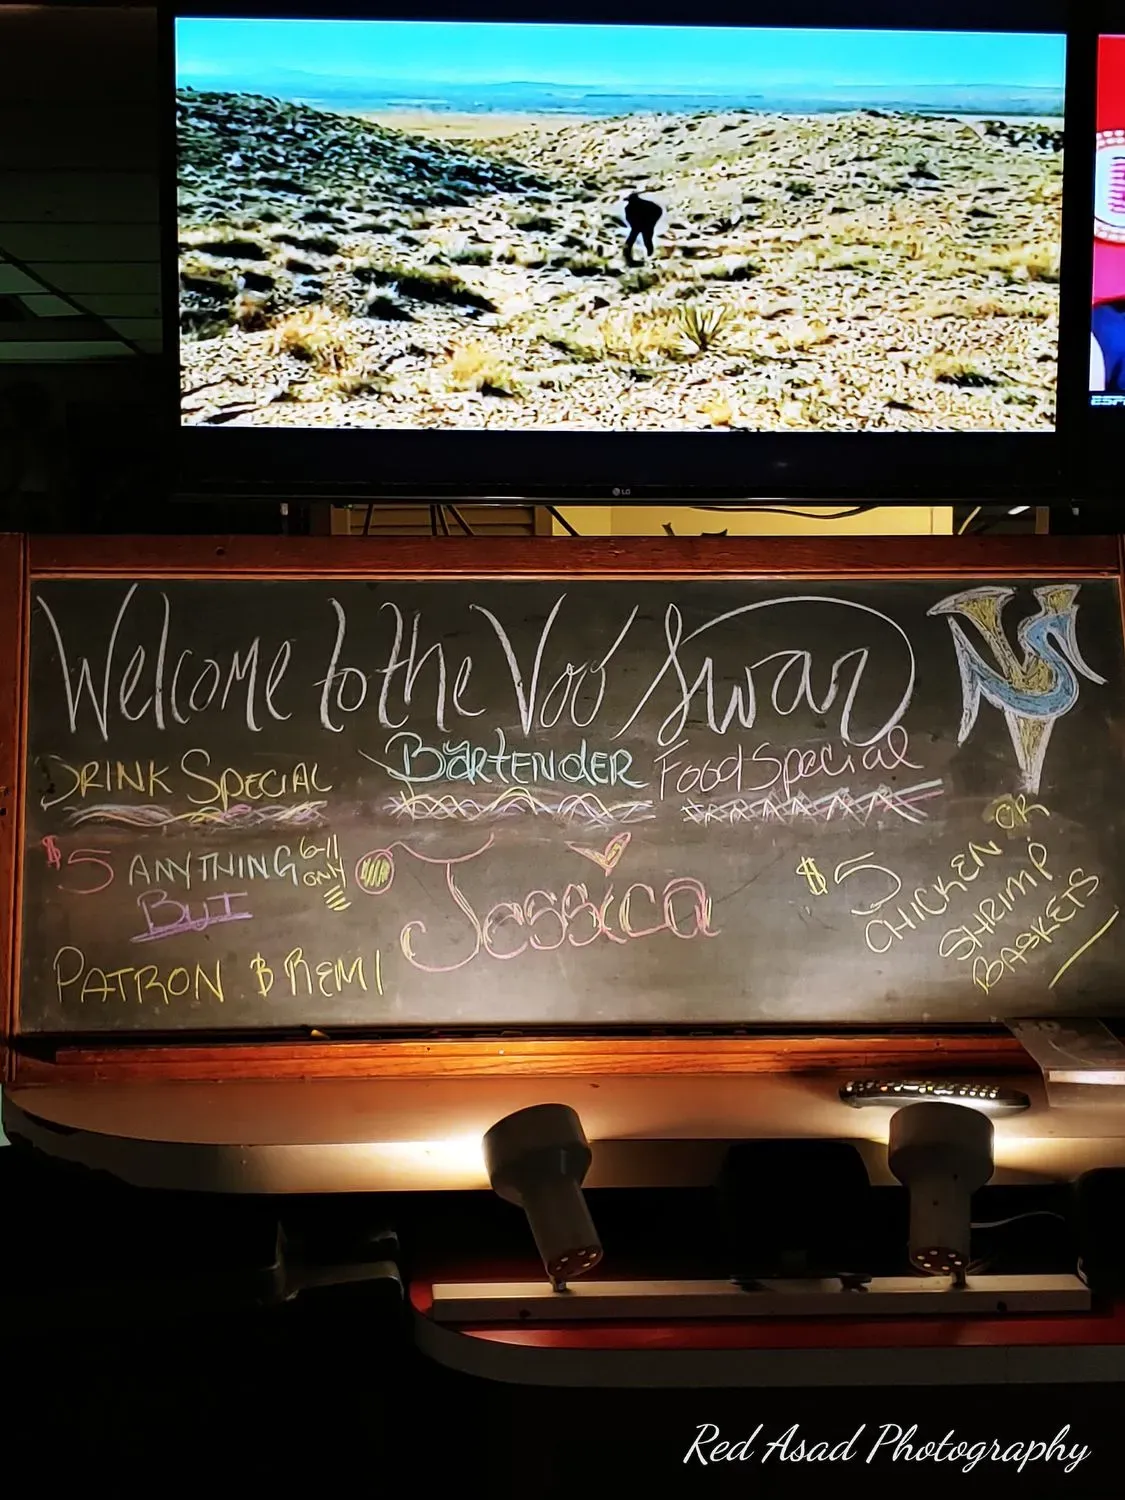 LG
ESP
Welcome to the Voo Swar
VS
DRINK SPECIAL
$5 ANYTHING 6-11 ONLY
BUT
PATRON & REMI
BARTENDER
Jessica
Food Special
$5 CHICKEN OR
SHRIMP
BASKETS
Red Asad Photography